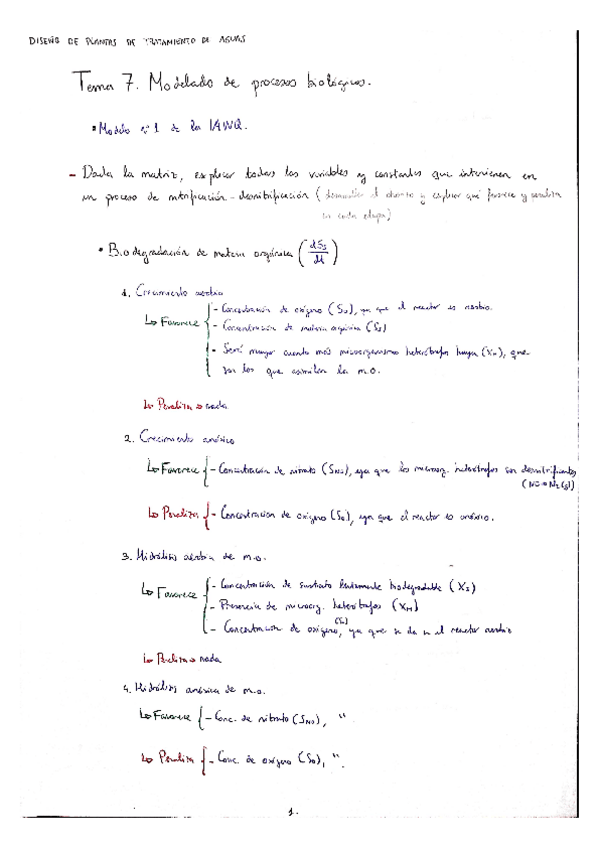 DISEÑO DE PLANTAS DE TRATAMIENTO DE AGUAS
Tema 7. Modelado de procesos biológicos.
• Modelo nº1 de la IAWQ.
- Dada la matriz, explicar todas las variables y constantes que intervienen en
un proceso de nitrificación-desnitrificación ( el y explicar qué favorece y penaliza
en cada etapa)
• Biodegradación de materia orgánica (dSs/dt)
1. Crecimiento aerobio
↳ Favorece { - Concentración de oxígeno (So), ya que el reactor es aerobio.
- Concentración de materia orgánica (Ss)
- Será mayor cuanto más microorganismos heterótrofos haya (XH), que
son los que asimilan la m.o.
↳ Penaliza → nada
2. Crecimiento anóxico
↳ Favorece { - Concentración de nitrato (SNO), ya que los microorg. heterótrofos son desnitrificantes
(NO → N2(g))
↳ Penaliza { - Concentración de oxígeno (So), ya que el reactor es anóxico.
3. Hidrólisis aerobia de m.o.
↳ Favorece { - Concentración de sustrato lentamente biodegradable (Xs)
- Presencia de microorg. heterótrofos (XH)
- Concentración de oxígeno (So), ya que se da en el reactor aerobio
↳ Penaliza → nada
4. Hidrólisis anóxica de m.o.
↳ Favorece { - Conc. de nitrato (SNO), "
↳ Penaliza { - Conc. de oxígeno (So), ".
1.